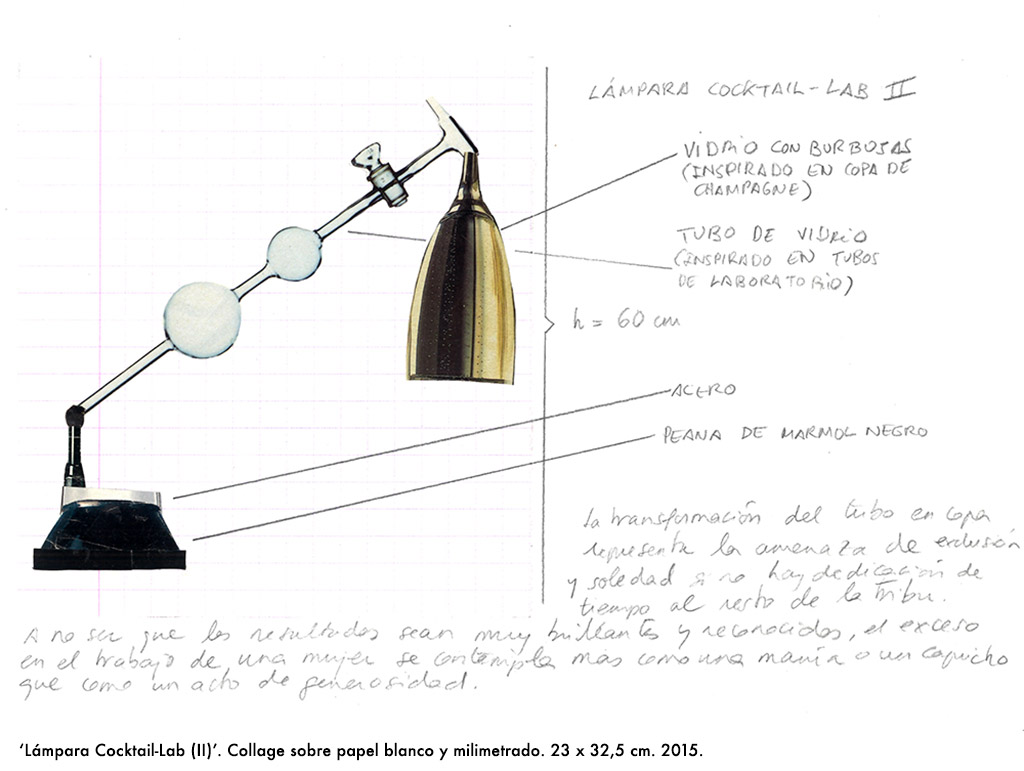 LÁMPARA COCKTAIL-LAB II
VIDRIO CON BURBUJAS
(INSPIRADO EN COPA DE
CHAMPAGNE)
TUBO DE VIDRIO
(INSPIRADO EN TUBOS
DE LABORATORIO)
h = 60 cm
ACERO
PEANA DE MARMOL NEGRO
La transformación del tubo en copa
representa la amenaza de exclusión
y soledad si no hay dedicación de
tiempo al resto de la tribu.
A no ser que los resultados sean muy brillantes y reconocidos, el exceso
en el trabajo de una mujer se contempla más como una manía o un capricho
que como un acto de generosidad.
‘Lámpara Cocktail-Lab (II)’. Collage sobre papel blanco y milimetrado. 23 x 32,5 cm. 2015.